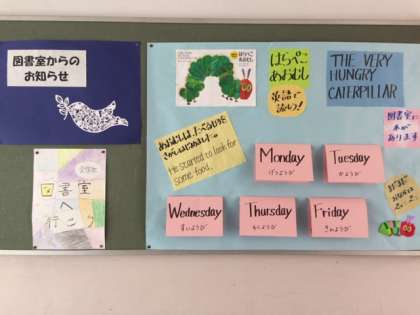 図書室からの
お知らせ
図書室
へ
行こう
はらぺこ
あおむし
はらぺこ
あおむし
英語で
読もう!
THE VERY
HUNGRY
CATERPILLAR
図書室に
本が
あります
あおむしは、たべるものを
さがしはじめました。
He started to look for
some food.
Monday
げつようび
Tuesday
かようび
Wednesday
すいようび
Thursday
もくようび
Friday
きんようび